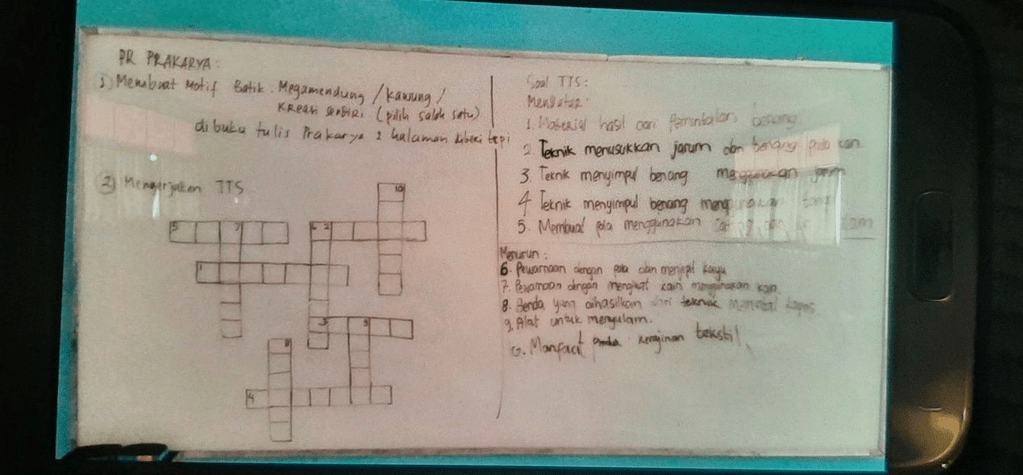 PR PRAKARYA :
1) Membuat Motif Batik . Megamendung / Kawung /
Kreasi sendiri (pilih salah satu)
dibuku tulis Prakarya 2 halaman diberi tepi
2) Mengerjakan TTS
10
5 7 6 2
1
3 9
8
4
Soal TTS :
Mendatar :
1. Material hasil dari pemintalan benang
2. Teknik menusukkan jarum dan benang pada kain
3. Teknik menyimpul benang menggunakan jarum
4. Teknik menyimpul benang menggunakan
5. Membuat pola menggunakan canting dan
Menurun :
6. Pewarnaan dengan pola dan menjepit kayu
7. Pewarnaan dengan mengikat kain menggunakan kain
8. Benda yang dihasilkan dari teknik memintal kapas
9. Alat untuk menyulam.
G. Manfaat produk kerajinan tekstil